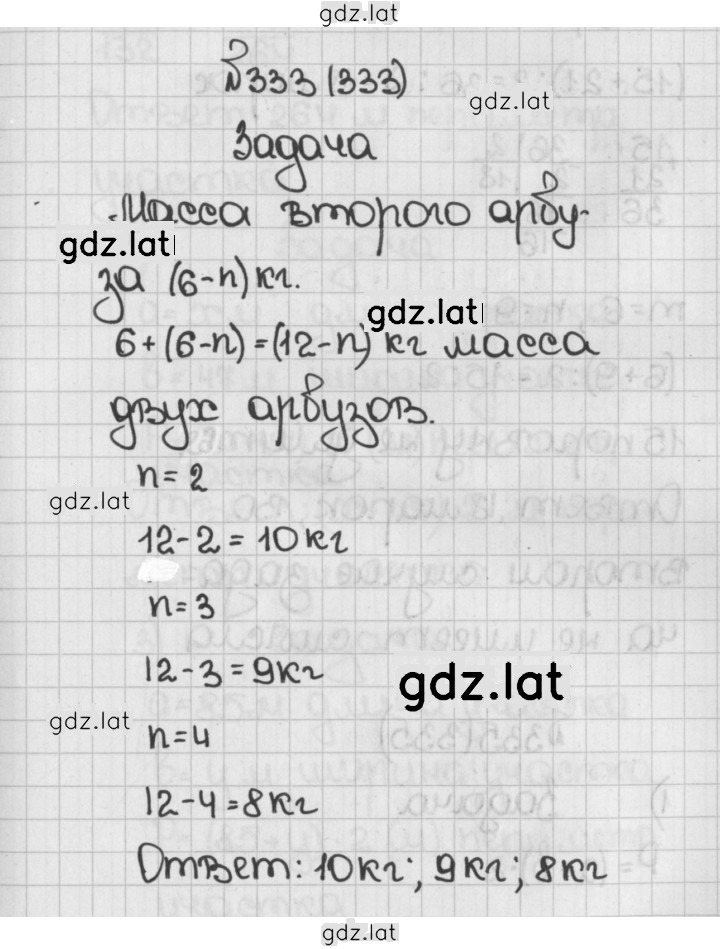 gdz.lat
№333 (333)
gdz.lat
Задача
Масса второго арбу-
gdz.lat
за (6-n) кг.
gdz.lat
6+(6-n)=(12-n) кг масса
двух арбузов.
n=2
gdz.lat
12-2=10кг
n=3
12-3=9кг
gdz.lat
gdz.lat
n=4
12-4=8кг
Ответ: 10кг; 9кг; 8кг
gdz.lat